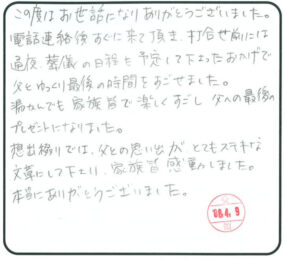 この度はお世話になりありがとうございました。
電話連絡後すぐに来て頂き、打合せ前には
通夜、葬儀の日程を予定して下さったおかげで
父とゆっくり最後の時間をすごせました。
湯かんでも家族皆で楽しくすごし 父への最後の
プレゼントになりました。
想出綴りでは、父との思い出が とてもステキな
文章にして下さり、家族皆感動しました。
本当にありがとうございました。
4.9